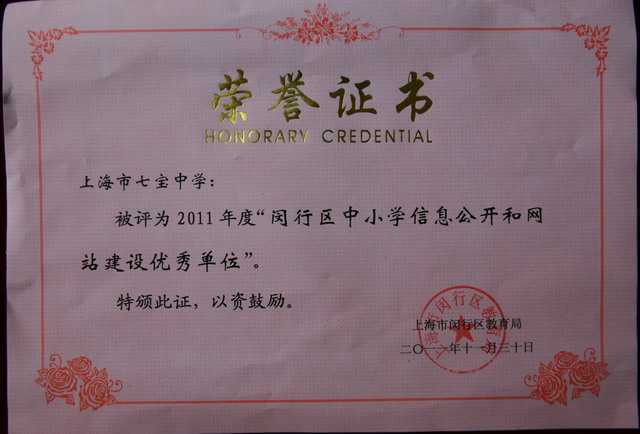 荣誉证书
HONORARY CREDENTIAL
上海市七宝中学：
被评为2011年度“闵行区中小学信息公开和网
站建设优秀单位”。
特颁此证，以资鼓励。
上海市闵行区教育局
二〇一一年十一月三十日
上海市闵行区教育局